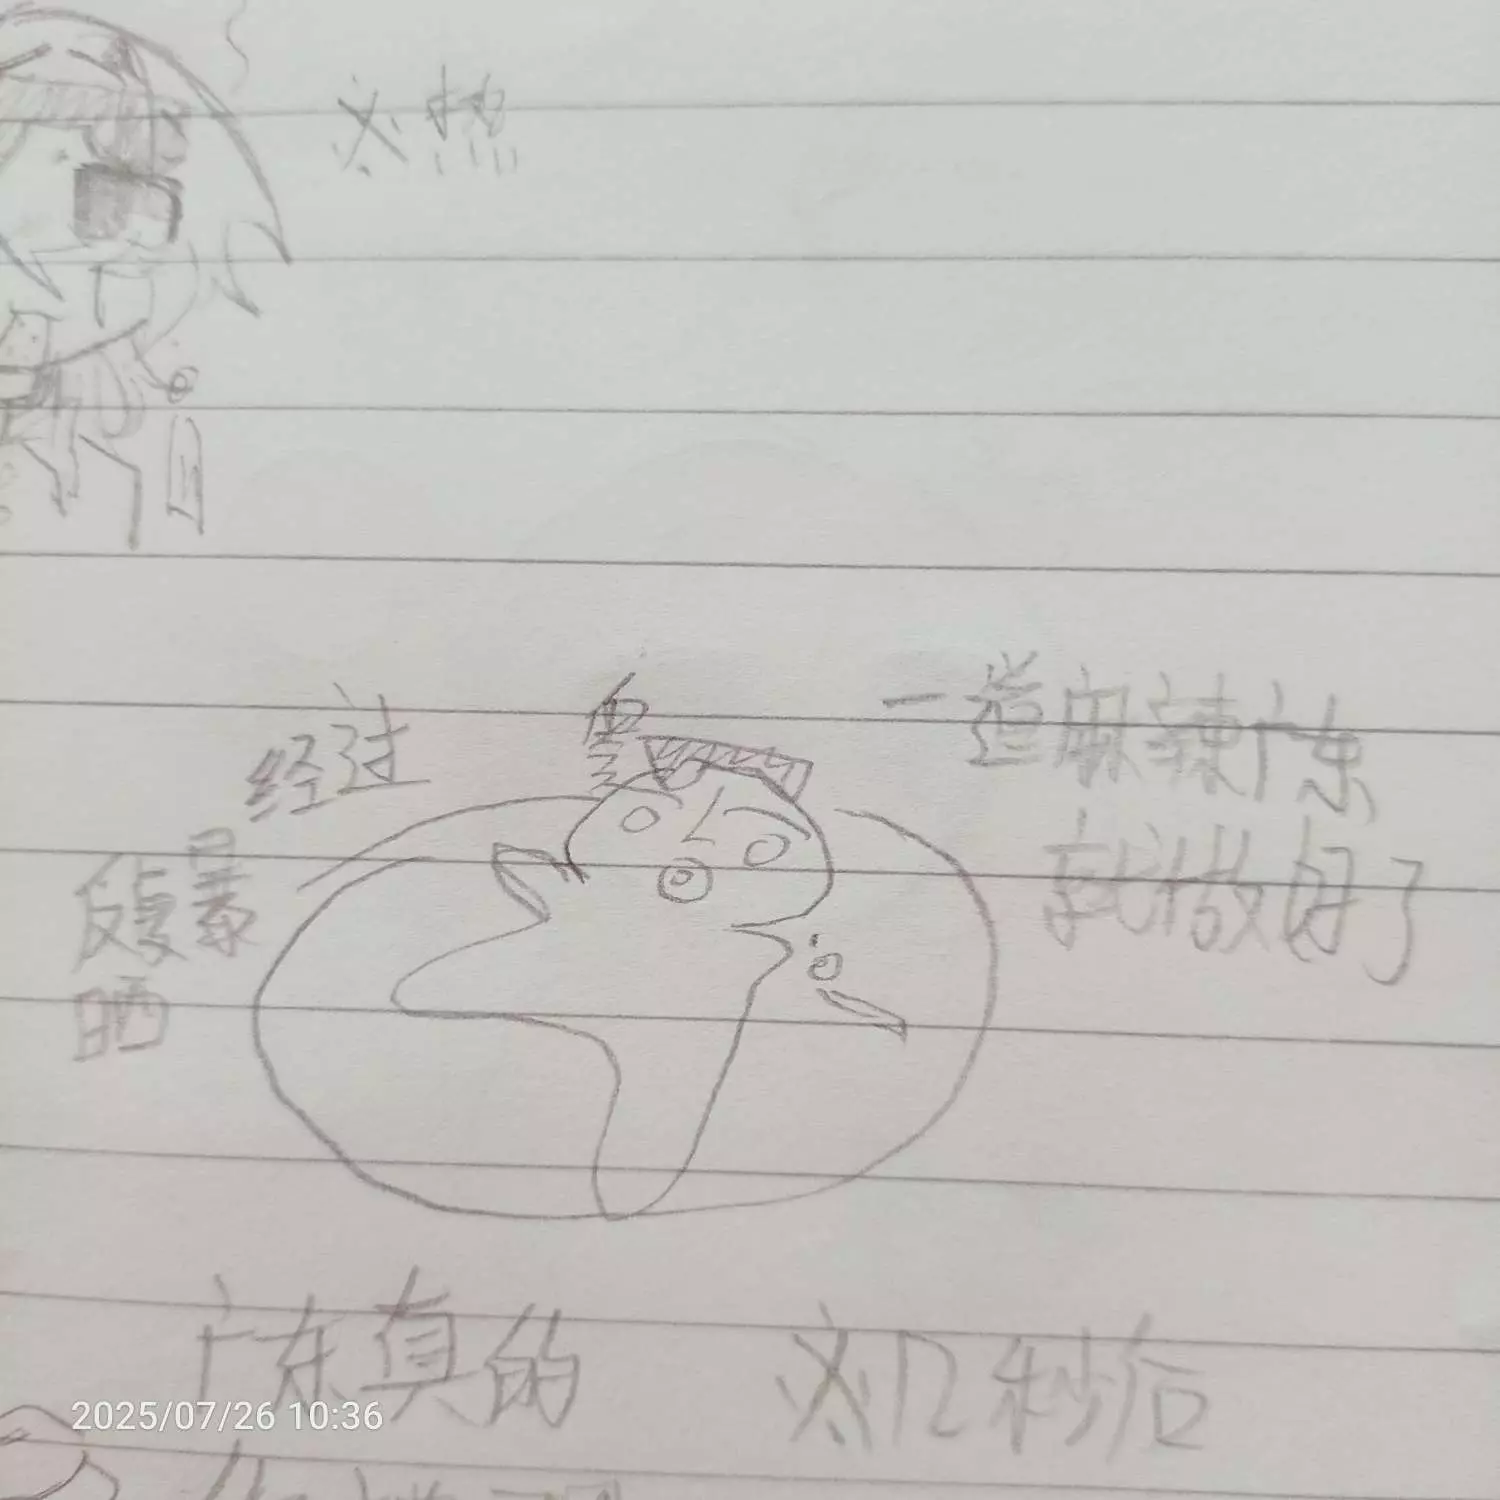 太热
经过
反复暴
晒
一道麻辣广东
就做好了
广东真的
太几秒后
2025/07/26 10:36